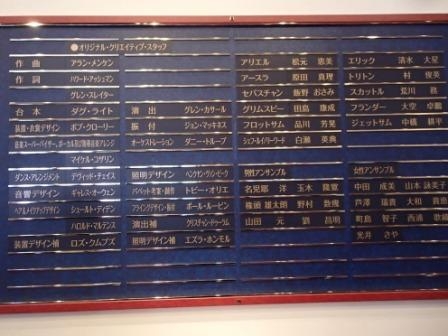 オリジナル・クリエイティブ・スタッフ
作曲 アラン・メンケン
作詞 ハワード・アッシュマン
グレン・スレイター
台本 ダグ・ライト
装置・衣裳デザイン ボブ・クローリー
マイケル・コザリン
ダンス・アレンジメント デヴィッド・チェイス
音響デザイン ギャレス・オーウェン
ヘアメイクアップデザイン シュールト・ディデン
ハロルド・マルテンス
装置デザイン補 ロズ・クームブズ
演出 グレン・カサール
振付 ジョン・マッキネス
オーケストレーション ダニー・トルーブ
照明デザイン
パペット考案・製作 トビー・オリエ
フライングデザイン・振付 ポール・ルービン
演出補
照明デザイン補 エズラ・ホンモル
アリエル 松元 恵美
アースラ 原田 真理
セバスチャン 飯野 おさみ
グリムスビー 田島 康成
フロットサム 品川 芳晃
シェフ・ルイ/リーワード 白瀬 英典
エリック 清水 大星
トリトン 村 俊英
スカットル 荒川 務
フランダー 大空 卓鵬
ジェットサム 中橋 耕平
男性アンサンブル
名児耶 洋 玉木 隆寛
権頭 雄太朗 野村 数幾
山田 元 劉 昌明
女性アンサンブル
中田 成美 山本 詠美子
芦澤 瑞貴 大和 貴恵
町島 智子 西浦 歌織
光井 さや